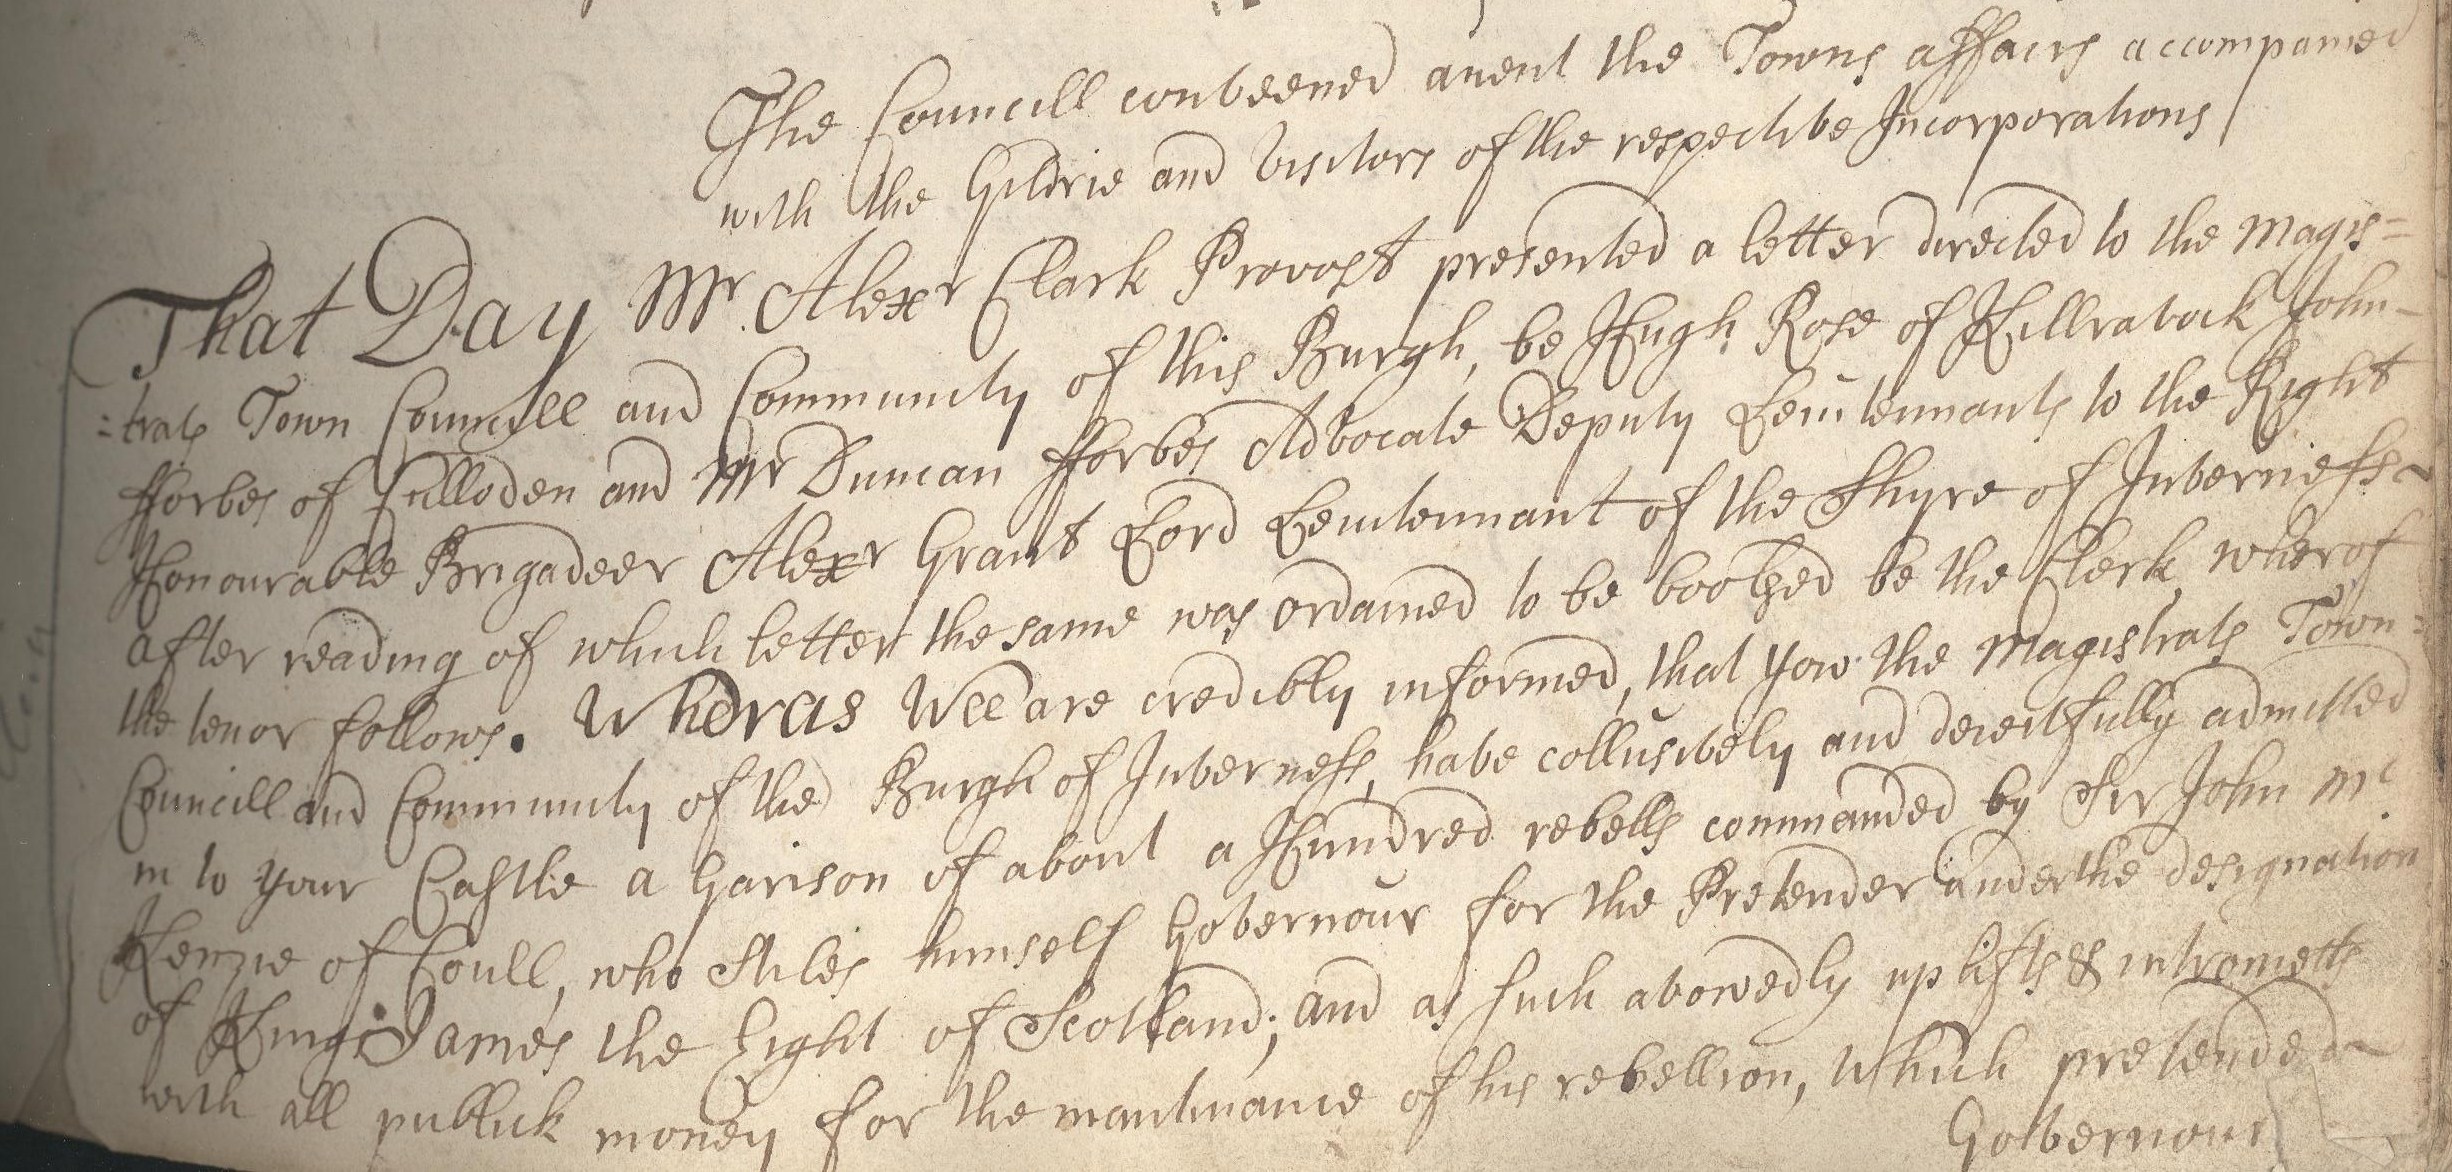 The Councill conveened anent the Towns affairs accompanied
with the Gildrie and Visitors of the respective Incorporations
That Day Mr. Alexr Clark Provost presented a letter directed to the Magis=
=trats Town Councill and Community of this Burgh, be Hugh Rose of Killravock John
fforbes of Culloden and Mr Duncan fforbes Advocate Deputy Leiutennants to the Right
Honourable Brigadeer Alexr Grant Lord Leiutennant of the Shyre of Inverness
After reading of which letter the same was ordained to be booked be the Clerk, wherof
the tenor follows. Wheras Wee are credibly informed, that yow the Magistrats Town=
Councill and Community of the Burgh of Inverness, have collusively and deceitfully admitted
in to your Castle a Garison of about a Hundred rebells commanded by Sir John Mc
Kenzie of Coull, who Stiles himself Governour for the Pretender under the designation
of King James the Eight of Scotland; and as such avowedly uplifts & intrometts
with all publick money for the mantinance of his rebellion, which pretended
Governour